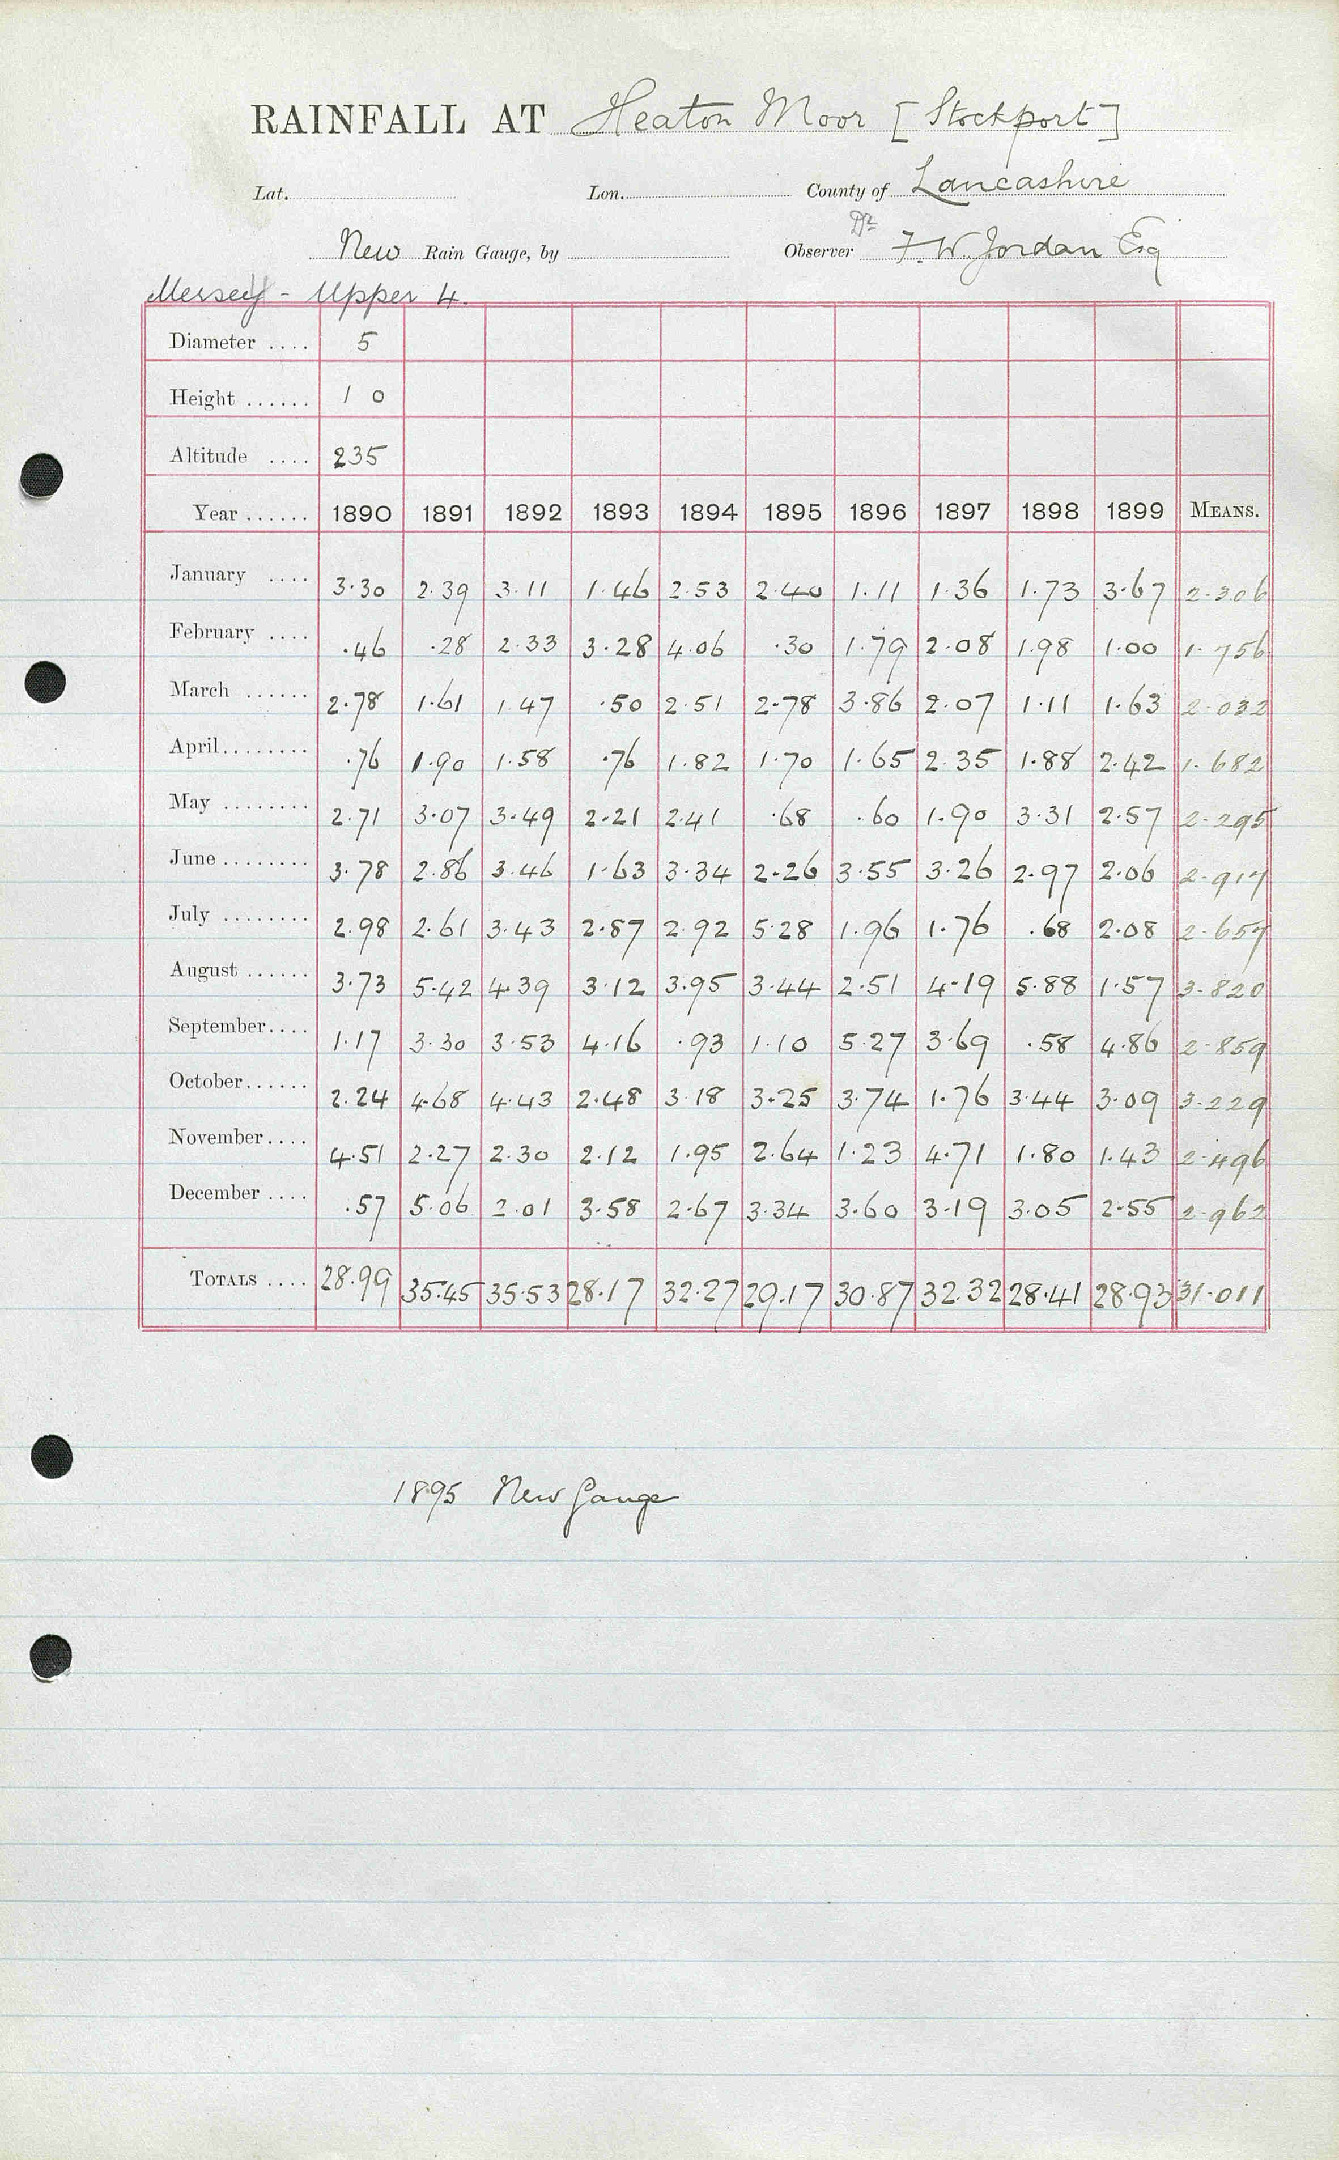 RAINFALL AT Heaton Moor [Stockport]
Lat. Lon. County of Lancashire
Dr
New Rain Gauge, by Observer F. W. Jordan Esq
Mersey - Upper 4.
Diameter .... 5
Height ...... 1 0
Altitude .... 235
Year ...... 1890 1891 1892 1893 1894 1895 1896 1897 1898 1899 MEANS.
January .... 3.30 2.39 3.11 1.46 2.53 2.40 1.11 1.36 1.73 3.67 2.306
February .... .46 .28 2.33 3.28 4.06 .30 1.79 2.08 1.98 1.00 1.756
March ...... 2.78 1.61 1.47 .50 2.51 2.78 3.86 2.07 1.11 1.63 2.032
April........ .76 1.90 1.58 .76 1.82 1.70 1.65 2.35 1.88 2.42 1.682
May ........ 2.71 3.07 3.49 2.21 2.41 .68 .60 1.90 3.31 2.57 2.295
June ........ 3.78 2.86 3.46 1.63 3.34 2.26 3.55 3.26 2.97 2.06 2.917
July ........ 2.98 2.61 3.43 2.87 2.92 5.28 1.96 1.76 .68 2.08 2.657
August ...... 3.73 5.42 4.39 3.12 3.95 3.44 2.51 4.19 5.88 1.57 3.820
September.... 1.17 3.30 3.53 4.16 .93 1.10 5.27 3.69 .58 4.86 2.859
October...... 2.24 4.68 4.43 2.48 3.18 3.25 3.74 1.76 3.44 3.09 3.229
November.... 4.51 2.27 2.30 2.12 1.95 2.64 1.23 4.71 1.80 1.43 2.496
December .... .57 5.06 2.01 3.58 2.67 3.34 3.60 3.19 3.05 2.55 2.962
TOTALS .... 28.99 35.45 35.53 28.17 32.27 29.17 30.87 32.32 28.41 28.93 31.011
1895 New Gauge